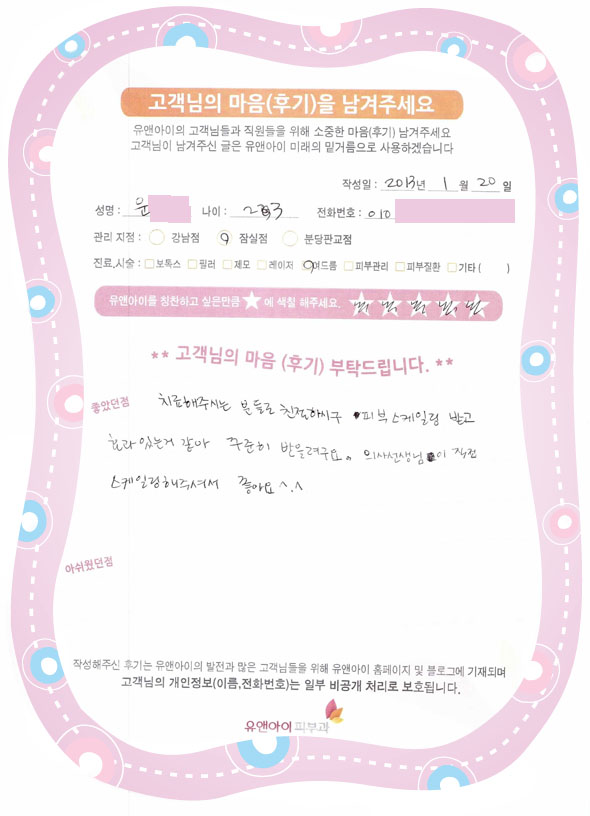 고객님의 마음(후기)을 남겨주세요
유앤아이의 고객님들과 직원들을 위해 소중한 마음(후기) 남겨주세요
고객님이 남겨주신 글은 유앤아이 미래의 밑거름으로 사용하겠습니다
작성일 : 2013년 1 월 20 일
성명 : 윤 나이 : 전화번호 : 010
관리 지점 : 강남점 잠실점 분당판교점
진료,시술 : 보톡스 필러 제모 레이저 여드름 피부관리 피부질환 기타 ( )
유앤아이를 칭찬하고 싶은만큼 ★ 에 색칠 해주세요.
** 고객님의 마음 (후기) 부탁드립니다. **
좋았던점 치료해주시는 분들도 친절하시구 피부스케일링 받고
효과있는거 같아 꾸준히 받을려구요. 의사선생님이 직접
스케일링해주셔서 좋아요 ^.^
아쉬웠던점
작성해주신 후기는 유앤아이의 발전과 많은 고객님들을 위해 유앤아이 홈페이지 및 블로그에 기재되며
고객님의 개인정보(이름,전화번호)는 일부 비공개 처리로 보호됩니다.
유앤아이피부과